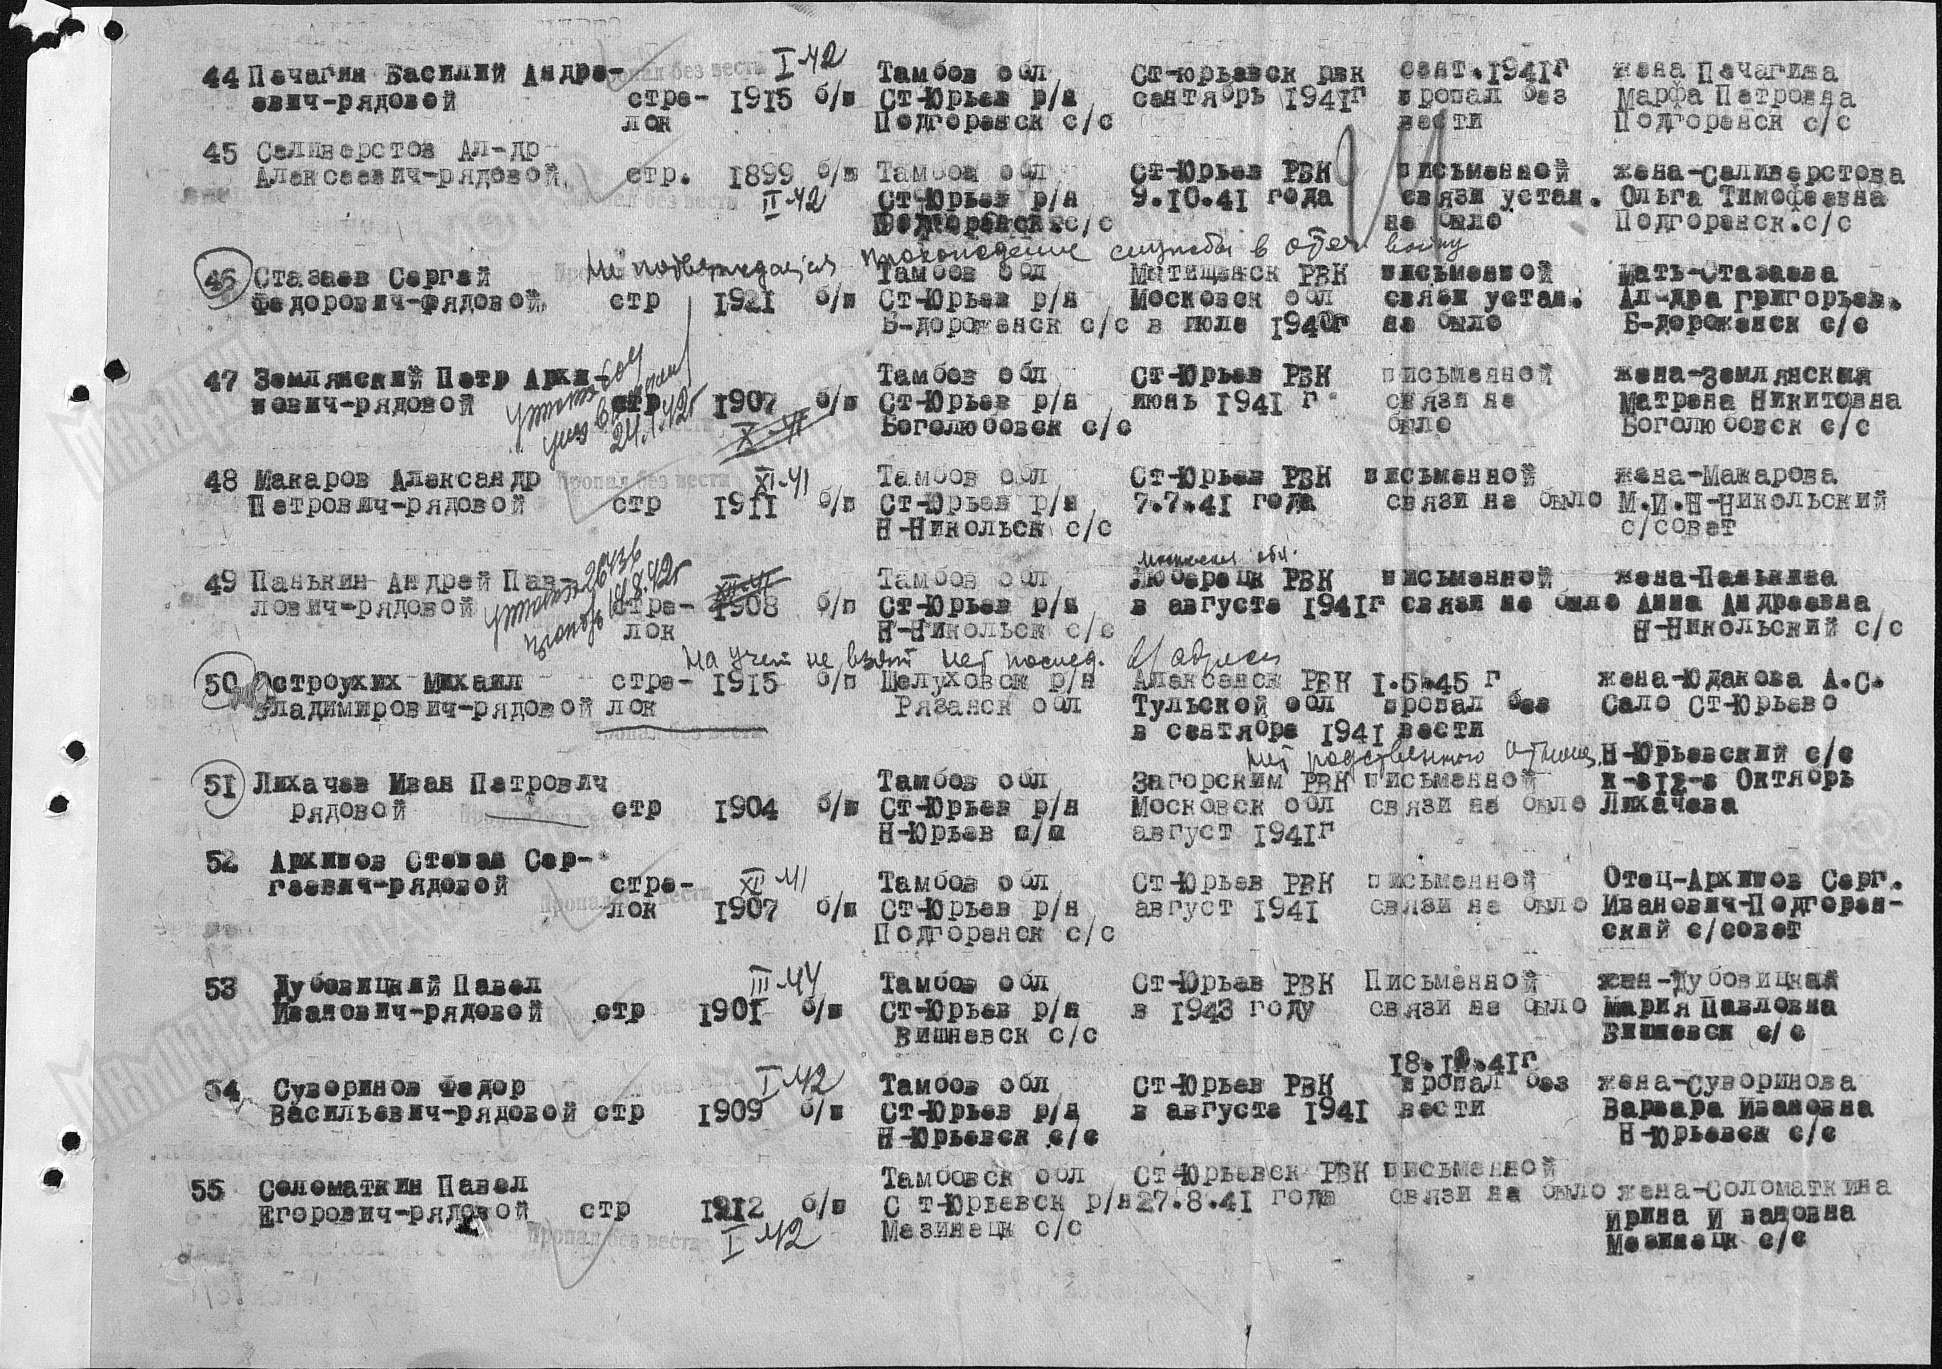 I-42
44 Печагин Василий Андре- Тамбов обл Ст-юрьевск рвк сент.1941г жена Печагина
евич-рядовой стре- 1915 б/п Ст-Юрьев р/н сентябрь 1941г пропал без Марфа Петровна
лок Подгоренск с/с вести Подгоренск с/с
45 Селиверстов Ал-др
Алексеевич-рядовой. стр. 1899 б/п Тамбов обл Ст-Юрьев РВК письменной жена-Селиверстова
II-42 Ст-Юрьев р/н 9.10.41 года связи устан. Ольга Тимофеевна
Подгоренск.с/с не было Подгоренск.с/с
Не подтверждается прохождение службы в отеч войну
46 Стазаев Сергей Тамбов обл Мытищинск РВК письменной мать-Стазаева
Федорович-рядовой. стр 1921 б/п Ст-Юрьев р/н Московск обл связи устан. Ал-дра григорьев.
Б-дороженск с/с в июле 1940г не было Б-дороженск с/с
47 Землянский Петр Архи- Тамбов обл Ст-Юрьев РВК письменной жена-Землянская
пович-рядовой стр 1907 б/п Ст-Юрьев р/н июнь 1941 г связи не Матрена Никитовна
24.1.42г X-41 Боголюбовск с/с было Боголюбовск с/с
48 Макаров Александр Пропал без вести XI-41 Тамбов обл Ст-Юрьев РВК письменной жена-Макарова
Петрович-рядовой стр 1911 б/п Ст-Юрьев р/н 7.7.41 года связи не было М.И.Н-Никольский
Н-Никольск с/с с/совет
Московская обл.
49 Панькин Андрей Пав- Тамбов обл Люберецк РВК письменной жена-Панькина
лович-рядовой стре- 1908 б/п Ст-Юрьев р/н в августе 1941г связи не было Анна Андреевна
лок Н-Никольск с/с Н-Никольский с/с
На учет не взят нет послед. адреса
50 Остроухих Михаил стре- 1915 б/п Шелуховск р/н Алексенск РВК 1.5.45 г жена-Юдакова А.С.
Владимирович-рядовой лок Рязанск обл Тульской обл пропал без Село Ст-Юрьево
Пропал без вести в сентябре 1941 вести
нет родственного отнош. Н-Юрьевский с/с
51 Лихачев Иван Петрович Тамбов обл Загорским РВК письменной к-з 12-е Октябрь
рядовой стр 1904 б/п Ст-Юрьев р/н Московск обл связи не было Лихачева
Н-Юрьев с/с август 1941г
52 Архипов Степан Сер-
геевич-рядовой стре- XI-41 Тамбов обл Ст-Юрьев РВК письменной Отец-Архипов Серг.
лок 1907 б/п Ст-Юрьев р/н август 1941 связи не было Иванович-Подгорен-
Подгоренск с/с ский с/совет
53 Дубовицкий Павел III-44 Тамбов обл Ст-Юрьев РВК Письменной жен-Дубовицкая
Иванович-рядовой стр 1901 б/п Ст-Юрьев р/н в 1943 году связи не было Мария Павловна
Вишневск с/с Вишневск с/с
54 Суворинов Федор I-42 Тамбов обл Ст-Юрьев РВК пропал без жена-Суворинова
Васильевич-рядовой стр 1909 б/п Ст-Юрьев р/н в августе 1941 вести Варвара Ивановна
Н-Юрьевск с/с Н-Юрьевск с/с
Тамбовск обл Ст-Юрьевск РВК письменной
55 Соломаткин Павел С т-Юрьевск р/н 27.8.41 года связи не было жена-Соломаткина
Егорович-рядовой стр 1912 б/п Мезинецк с/с Ирина И вановна
Пропал без вести I-42 Мезинецк с/с